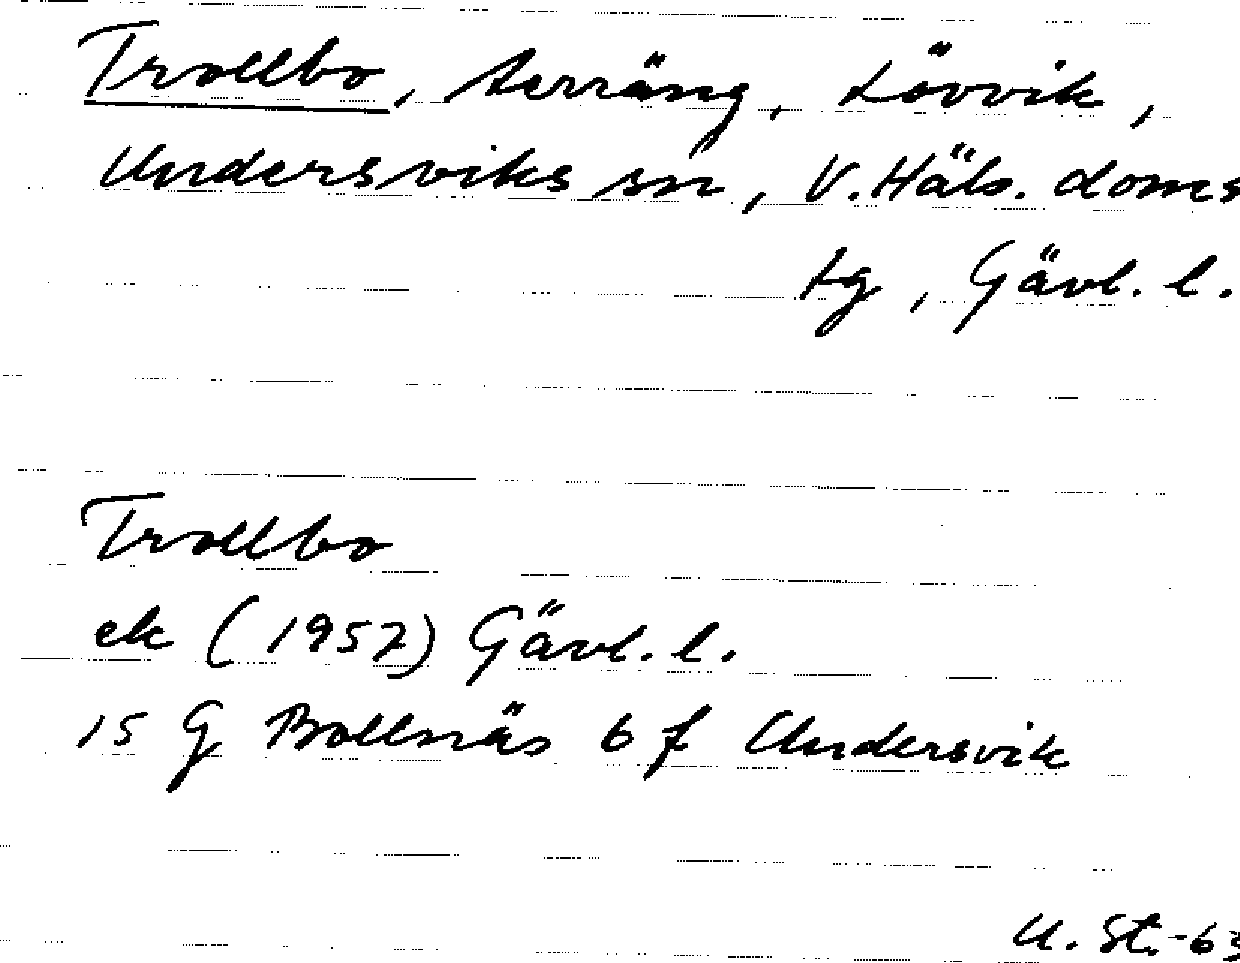 Trollbo, terräng, Lövvik,
Undersviks sn, V. Häls. doms
tg, Gävl. l.
Trollbo
ek (1957) Gävl. l.
15 G Bollnäs 6 f Undersvik
U. St.-63